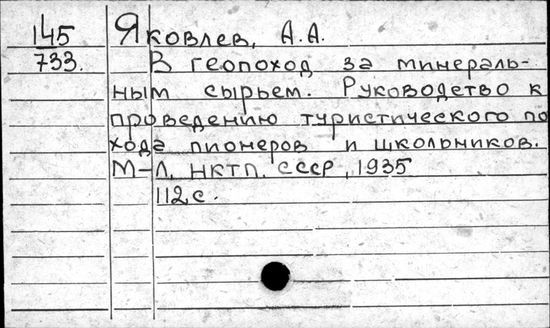 145 Яковлев, А.А.
733. В геопоход за минераль-
ным сырьем. Руководство к
проведению туристического по
хода пионеров и школьников.
М-Л, НКТП. СССР, 1935
112 с.